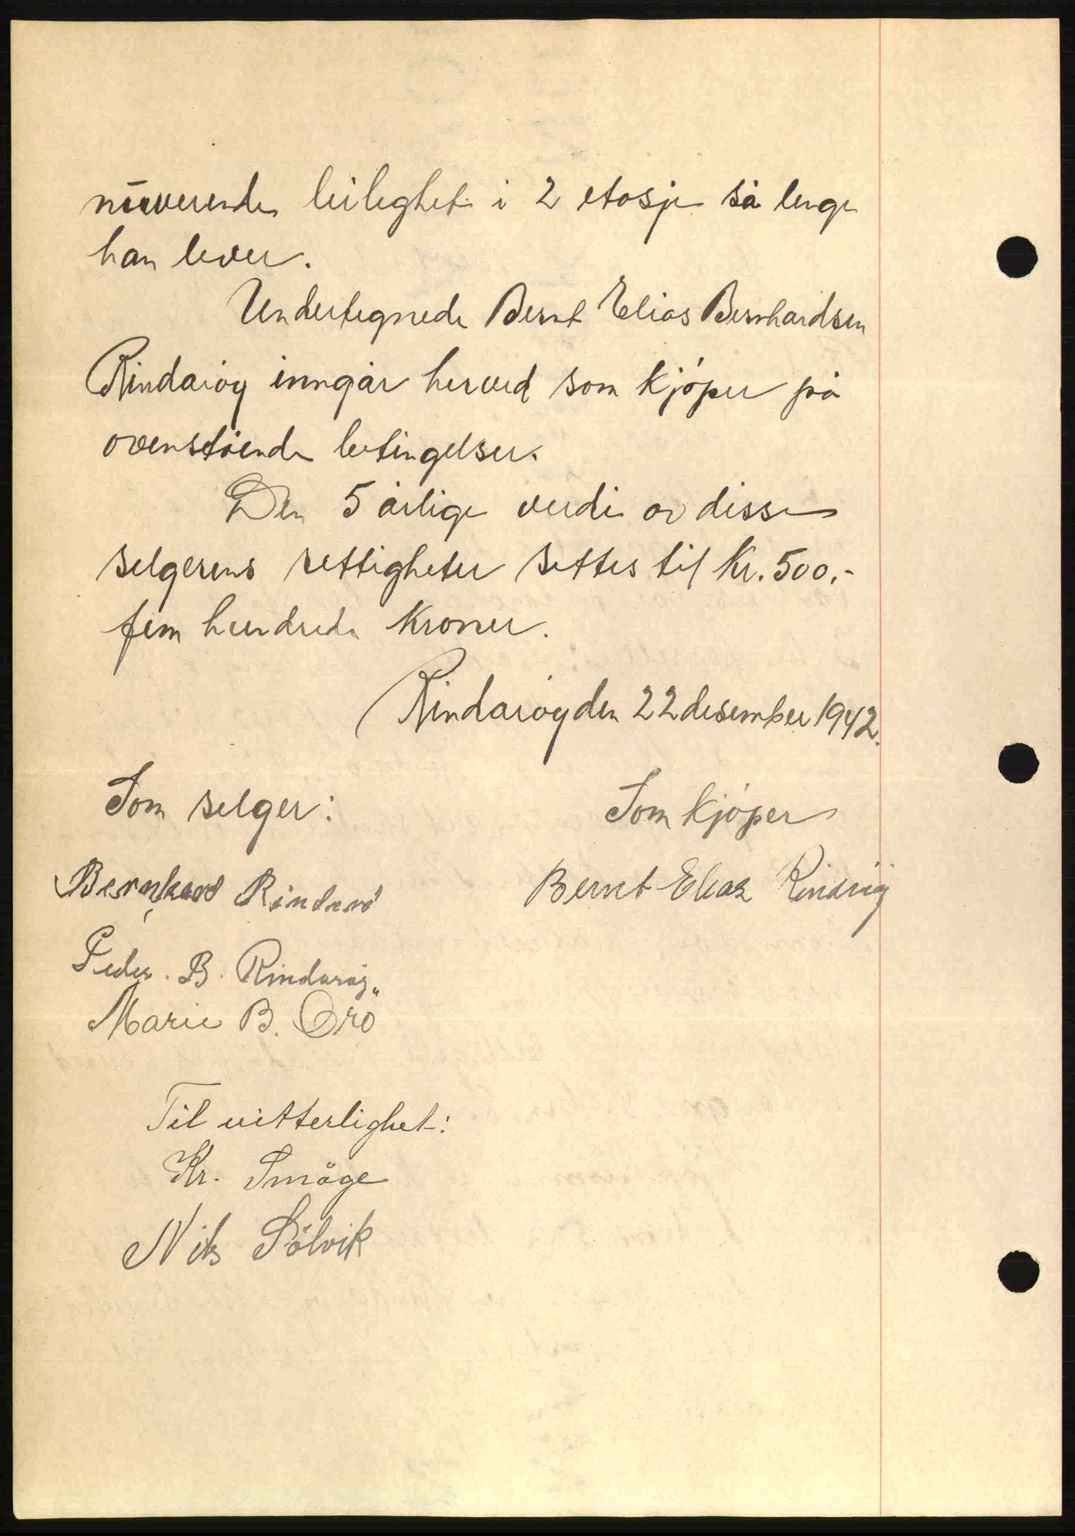 nåværende leilighet i 2 etasje så lenge
han lever.
Undertegnede Bernt Elias Bernhardsen
Rindarøy inngår herved som kjøper på
ovenstående betingelser.
Den 5 årlige verdi av disse
selgerens rettigheter settes til kr. 500,-
fem hundrede kroner.
Rindarøy den 22 desember 1942.
Som selger:
Som kjøper
Bernhard
Bernt Elias Rindrøy
Peder. B. Rindarøy
Marie B. Oro
Til vitterlighet:
Kr. Småge
Nils Sölvik